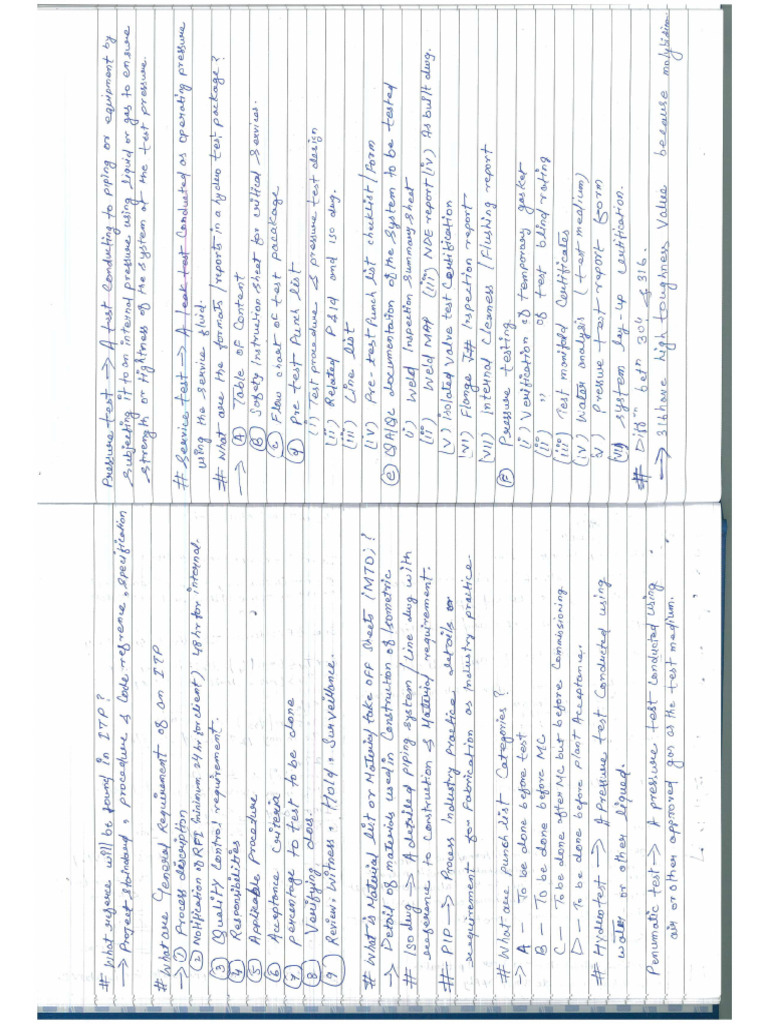 # What referance will be found in ITP?
→ Project standard, procedure & Code refrence, specification
# What are General Requirement of an ITP
→ ① Process description
② Notification of RFI (minimum 24 hr for client) 48 hr for internal.
③ Quality control requirement.
④ Responsibilities
⑤ Applicable procedure
⑥ Acceptance criteria
⑦ percentage to test to be done
⑧ Verifying docs.
⑨ Review, Witness, Hold, Surveillance.
# What is Material list or Material take off Sheets (MTO)?
→ Detail of materials used in Construction of Isometric
# Iso dwg → A detailed piping system / Line dwg with
reference to Construction & Material requirement.
# PIP → Process Industry Practice details or
requirement for Fabrication as Industry practice
# What are punch list Categories?
→ A - To be done before test
B - To be done before MC
C - To be done after MC but before Commissioning
D - To be done before plant Acceptance.
# Hydrotest → A Pressure test Conducted using
water or other liqued.
Penumatic test → A pressure test conducted using
air or other approved gas as the test medium.
Pressure test → A test conducting to piping or equipment by
Subjecting it to an internal pressure using liquid or gas to ensure
strength or tightness of the system at the test pressure.
# Service test → A leak test Conducted as operating pressure
using the service fluid.
# What are the formats / reports in a hydro test package?
→ Ⓐ Table of Content
Ⓑ Safety Instruction sheet for critical services.
Ⓒ Flow chart of test pacakage
ⓓ Pre test Punch list
(i) Test procedure & pressure test design
(ii) Related P&id and iso dwg.
(iii) Line list
(iv) Pre-test Punch list checklist / Form
ⓔ QA/QC documentation of the System to be tested
i) Weld Inspection summary sheet
(ii) Weld MAP (iii) NDE report (iv) As built dwg.
(v) isolated valve test Certification
(vi) Flange Inspection report
(vii) Internal Cleaness / Flushing report
Ⓕ Pressure testing.
(i) Verification of temporary gasket
(ii) " of test blind rating
(iii) Test manifold Certificates
(iv) Water analysis (test medium)
v) Pressure test report form
(vi) system lay-up certification.
# Diff'n bet'n 304 & 316.
→ 316 have high toughness Value because molybidinm.